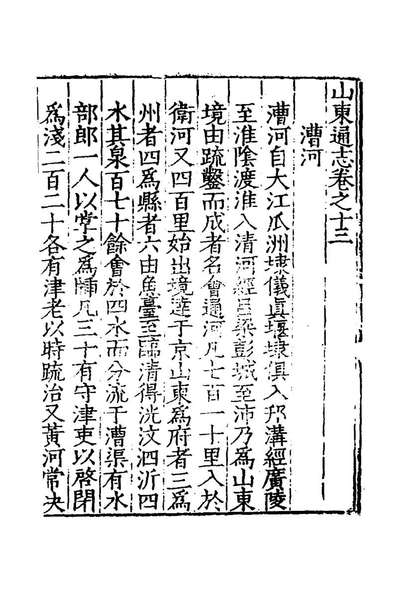 山東通志卷之十三
漕河
漕河自大江瓜洲埭儀真堰埭俱入邗溝經廣陵
至淮陰渡淮入清河經呂梁彭城至沛乃爲山東
境由疏鑿而成者名會通河凡七百一十里入於
衛河又四百里始出境達于京山東爲府者三爲
州者四爲縣者六由魚臺至臨清得洸汶泗沂四
水其泉百七十餘會於四水而分流于漕渠有水
部郎一人以掌之爲牐凡三十有守津吏以啓閉
爲淺二百二十各有津老以時疏治又黃河常决